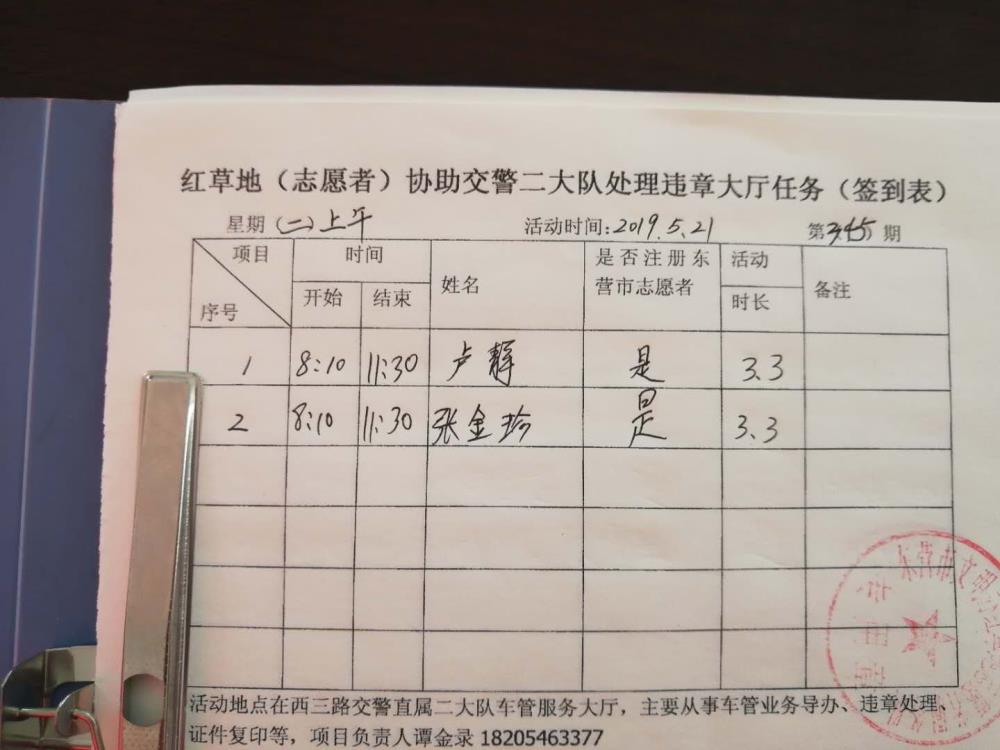 红草地（志愿者）协助交警二大队处理违章大厅任务（签到表）
星期（二）上午 活动时间:2019.5.21 第345期
项目 时间 姓名 是否注册东营市志愿者 活动时长 备注
序号 开始 结束
1 8:10 11:30 卢静 是 3.3
2 8:10 11:30 张金珍 是 3.3
东营市文明
红草地
活动地点在西三路交警直属二大队车管服务大厅，主要从事车管业务导办、违章处理、
证件复印等，项目负责人谭金录 18205463377